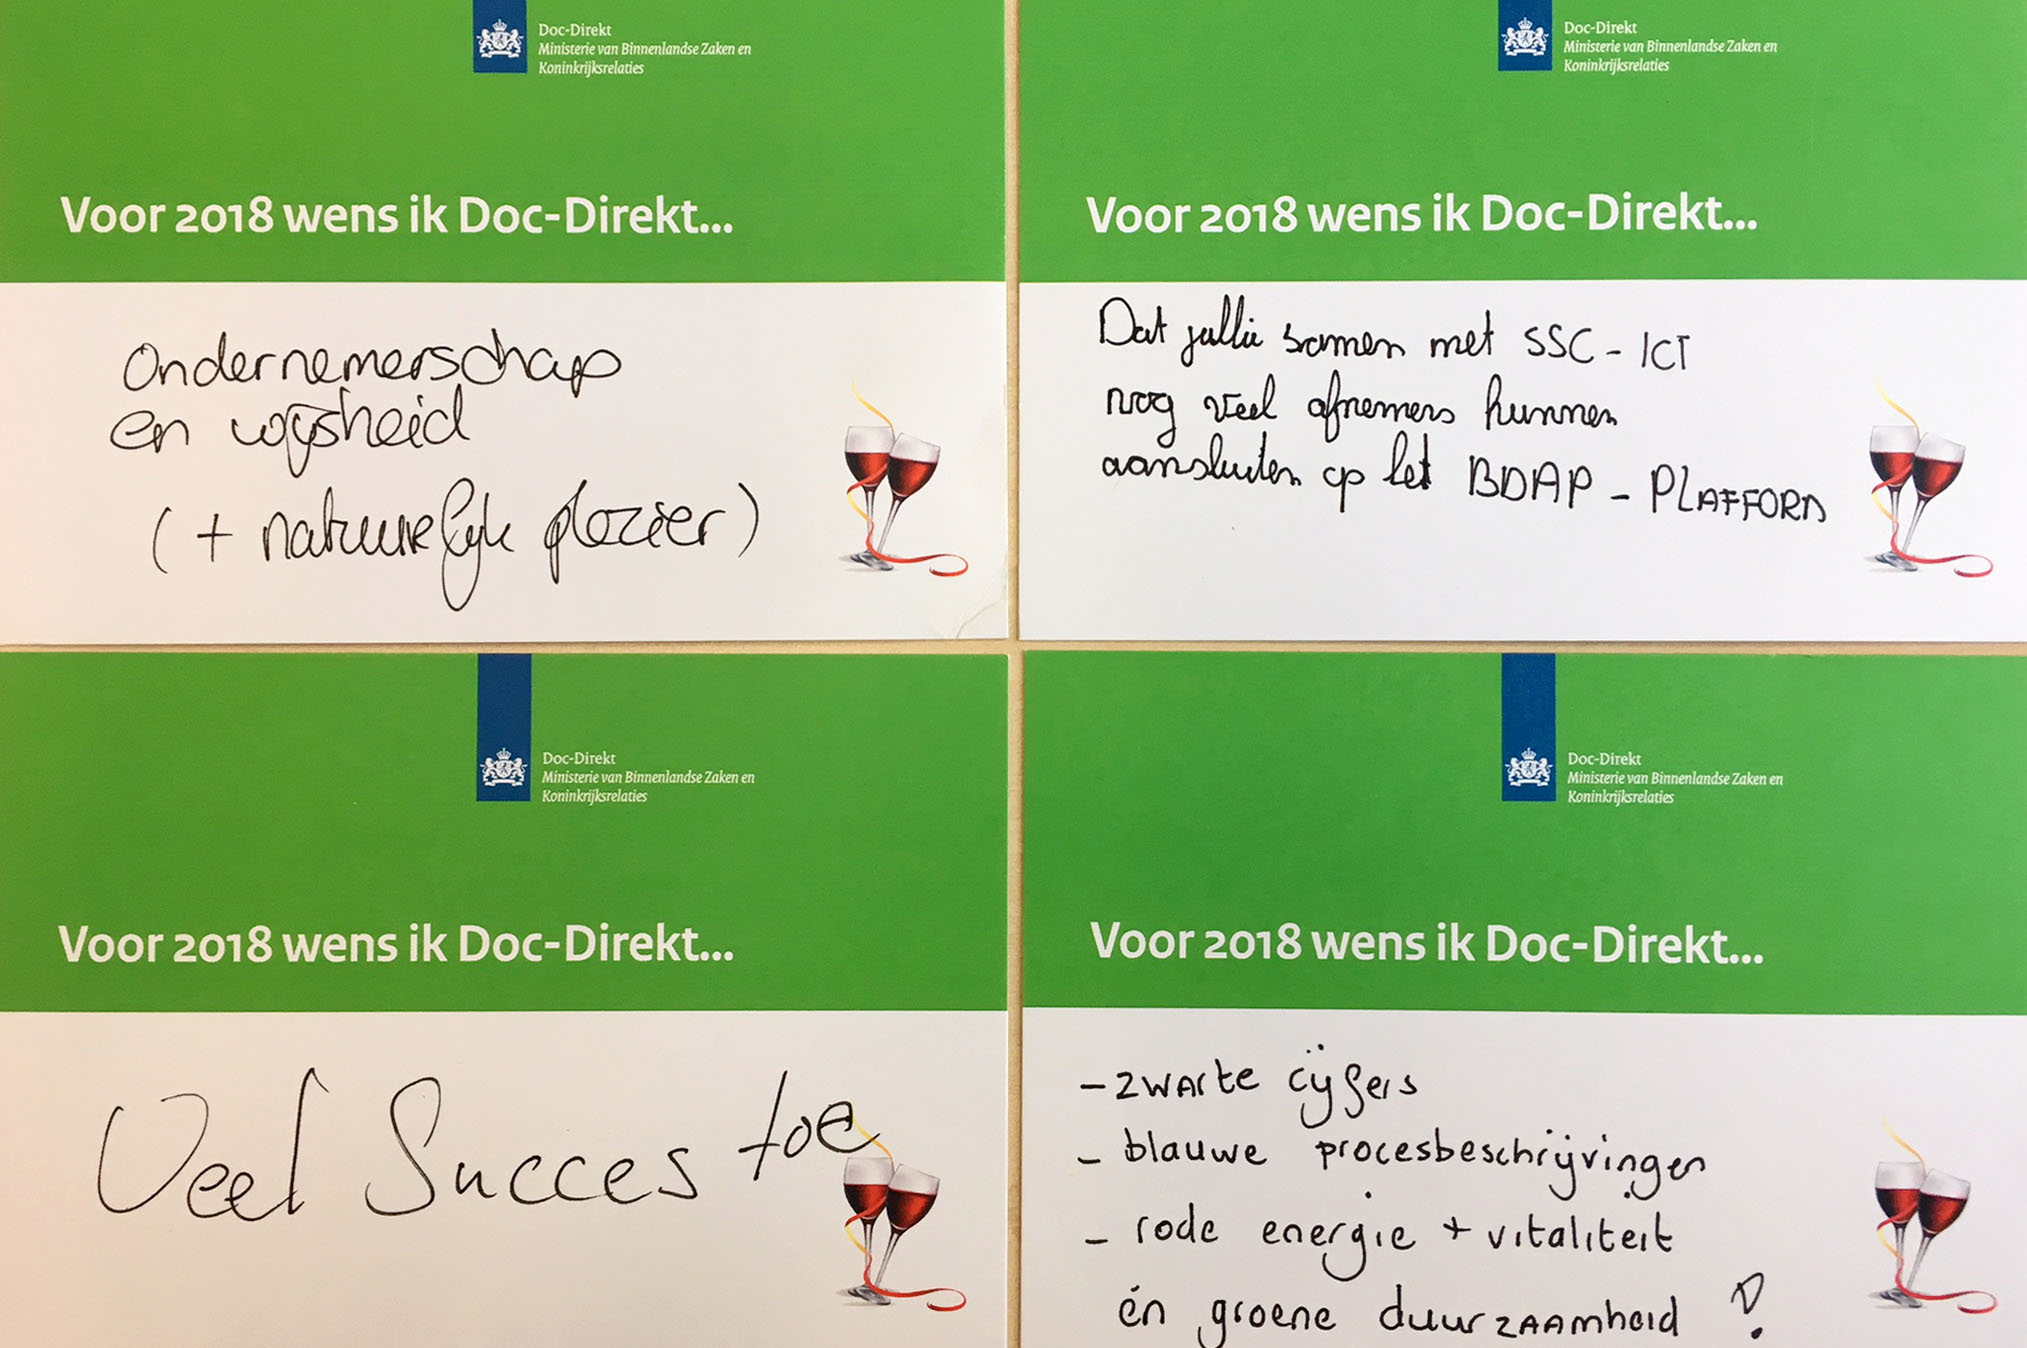 Doc-Direkt
Ministerie van Binnenlandse Zaken en
Koninkrijksrelaties
Voor 2018 wens ik Doc-Direkt...
Ondernemerschap
en wijsheid
(+ natuurlijk plezier)
Doc-Direkt
Ministerie van Binnenlandse Zaken en
Koninkrijksrelaties
Voor 2018 wens ik Doc-Direkt...
Dat jullie samen met SSC-ICT
nog veel afnemers kunnen
aansluiten op het BDAP-PLAFFORM
Doc-Direkt
Ministerie van Binnenlandse Zaken en
Koninkrijksrelaties
Voor 2018 wens ik Doc-Direkt...
Veel Succes toe
Doc-Direkt
Ministerie van Binnenlandse Zaken en
Koninkrijksrelaties
Voor 2018 wens ik Doc-Direkt...
- zwarte cijfers
- blauwe procesbeschrijvingen
- rode energie + vitaliteit
én groene duurzaamheid !